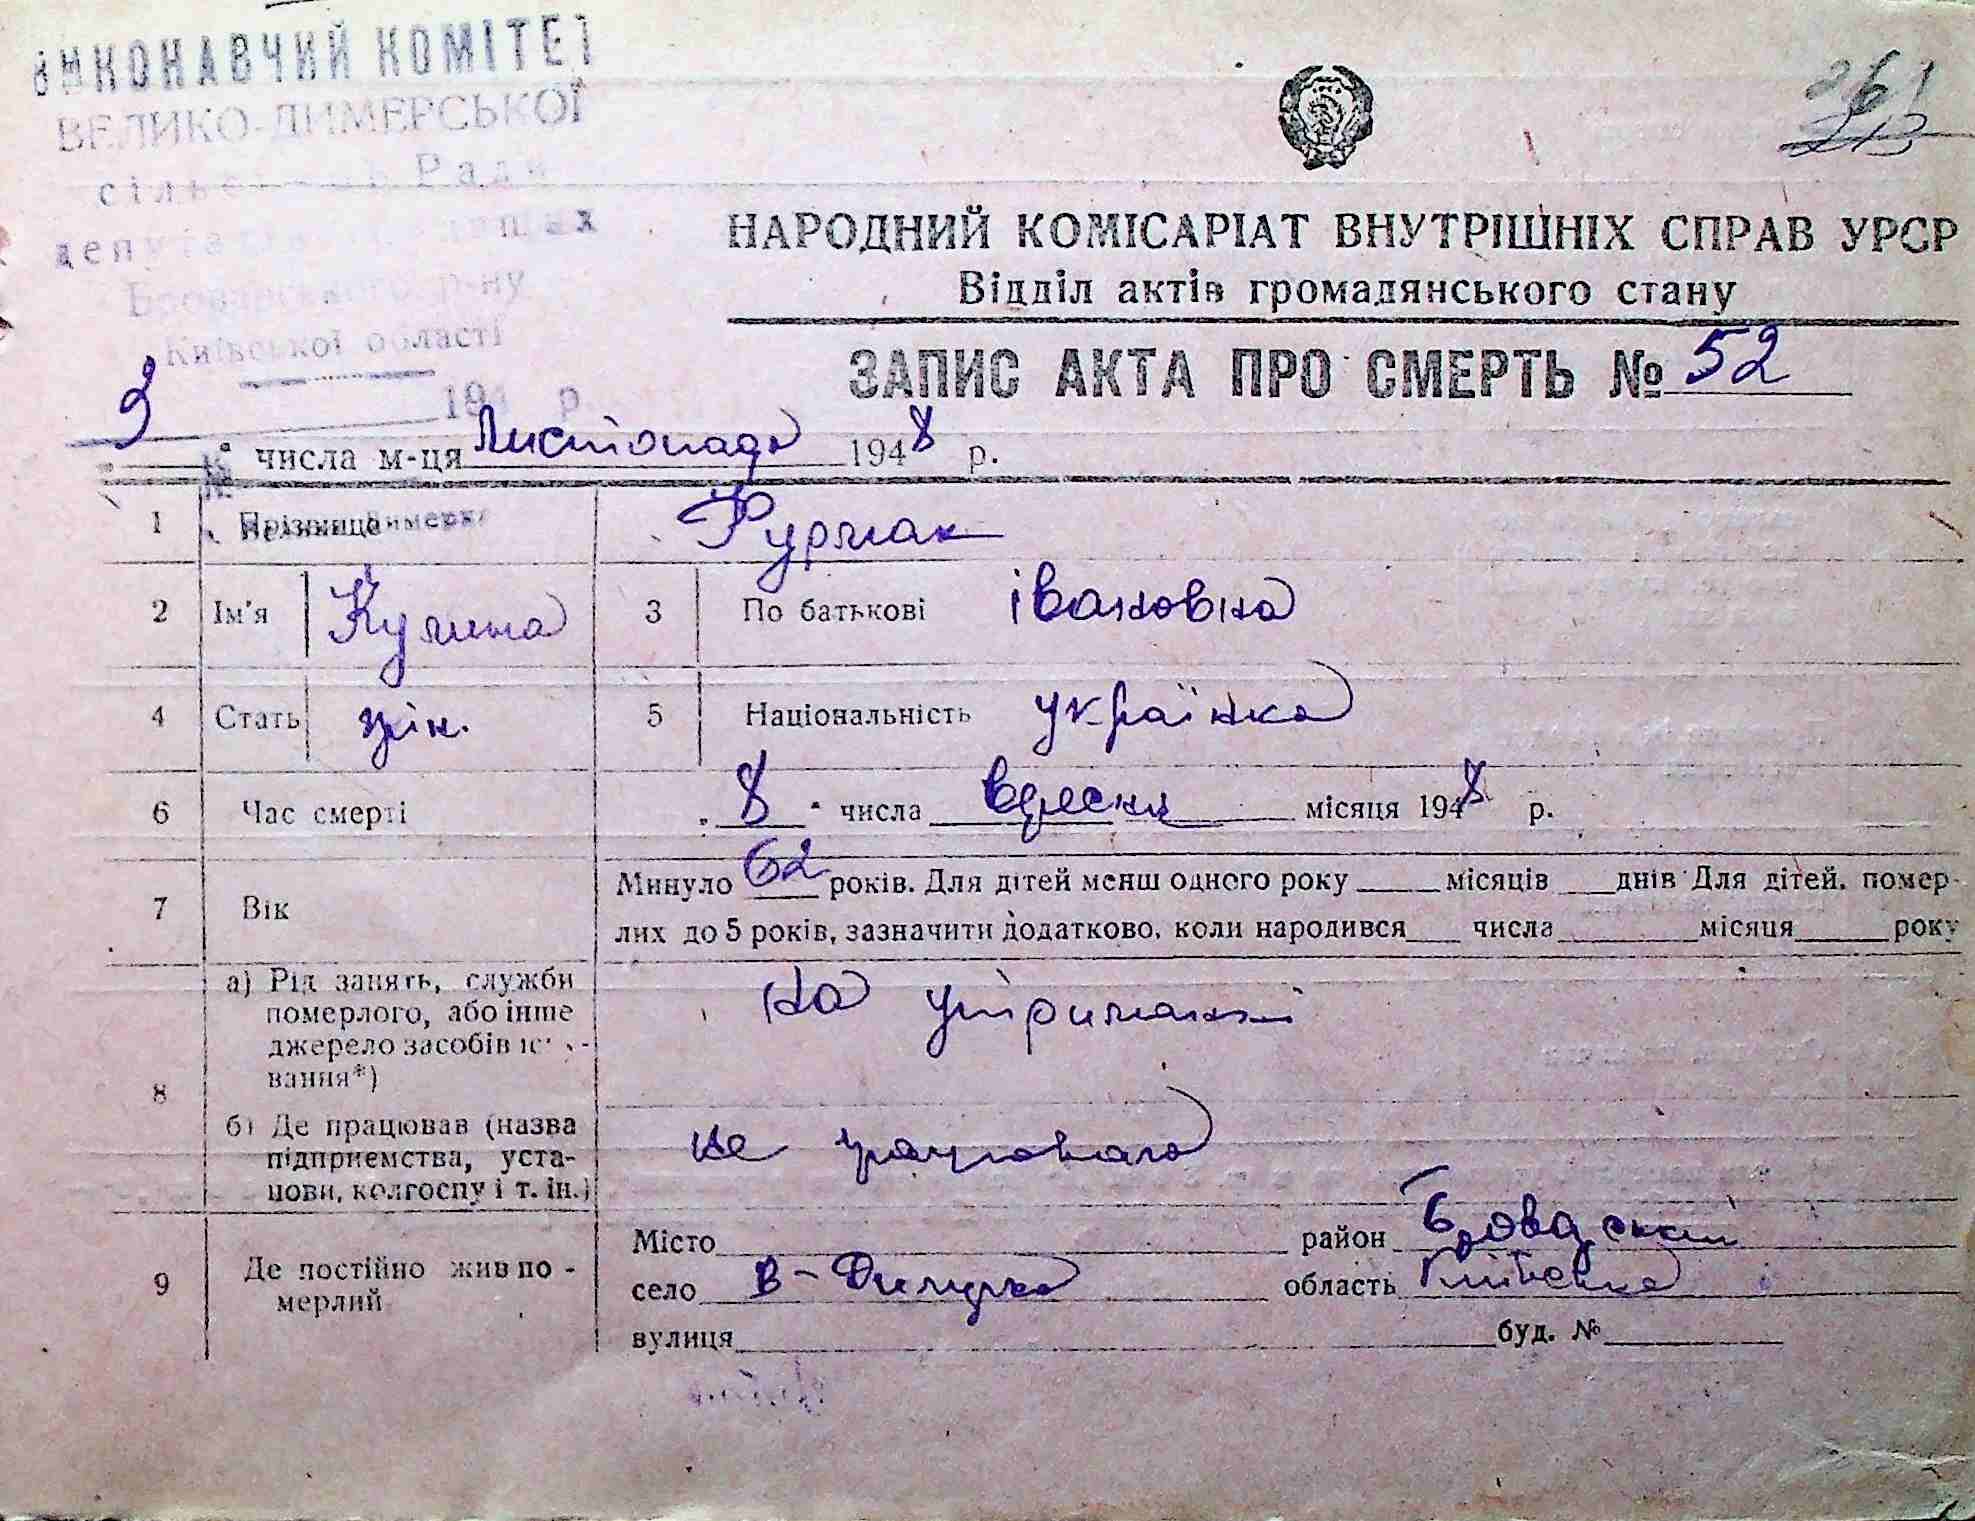 ВИКОНАВЧИЙ КОМІТЕТ
ВЕЛИКО-ДИМЕРСЬКОЇ
Ради
Броварського р-ну
Київської області
194 р.
261
НАРОДНИЙ КОМІСАРІАТ ВНУТРІШНІХ СПРАВ УРСР
Відділ актів громадянського стану
ЗАПИС АКТА ПРО СМЕРТЬ № 52
3 числа м-ця Листопада 1948 р.
1 Прізвище Фурман
2 Ім'я Кулина 3 По батькові івановна
4 Стать жін. 5 Національність українка
6 Час смерті 8 числа вересня місяця 1948 р.
7 Вік Минуло 62 років. Для дітей менш одного року місяців днів Для дітей, помер-
лих до 5 років, зазначити додатково, коли народився числа місяця року
8 а) Рід занять, служби
померлого, або інше
джерело засобів існу-
вання*) на утриманні
б) Де працював (назва
підприємства, уста-
нови, колгоспу і т. ін.) не працювала
9 Де постійно жив по-
мерлий
Місто район Броварський
село В-Димерка область Київська
вулиця буд. №